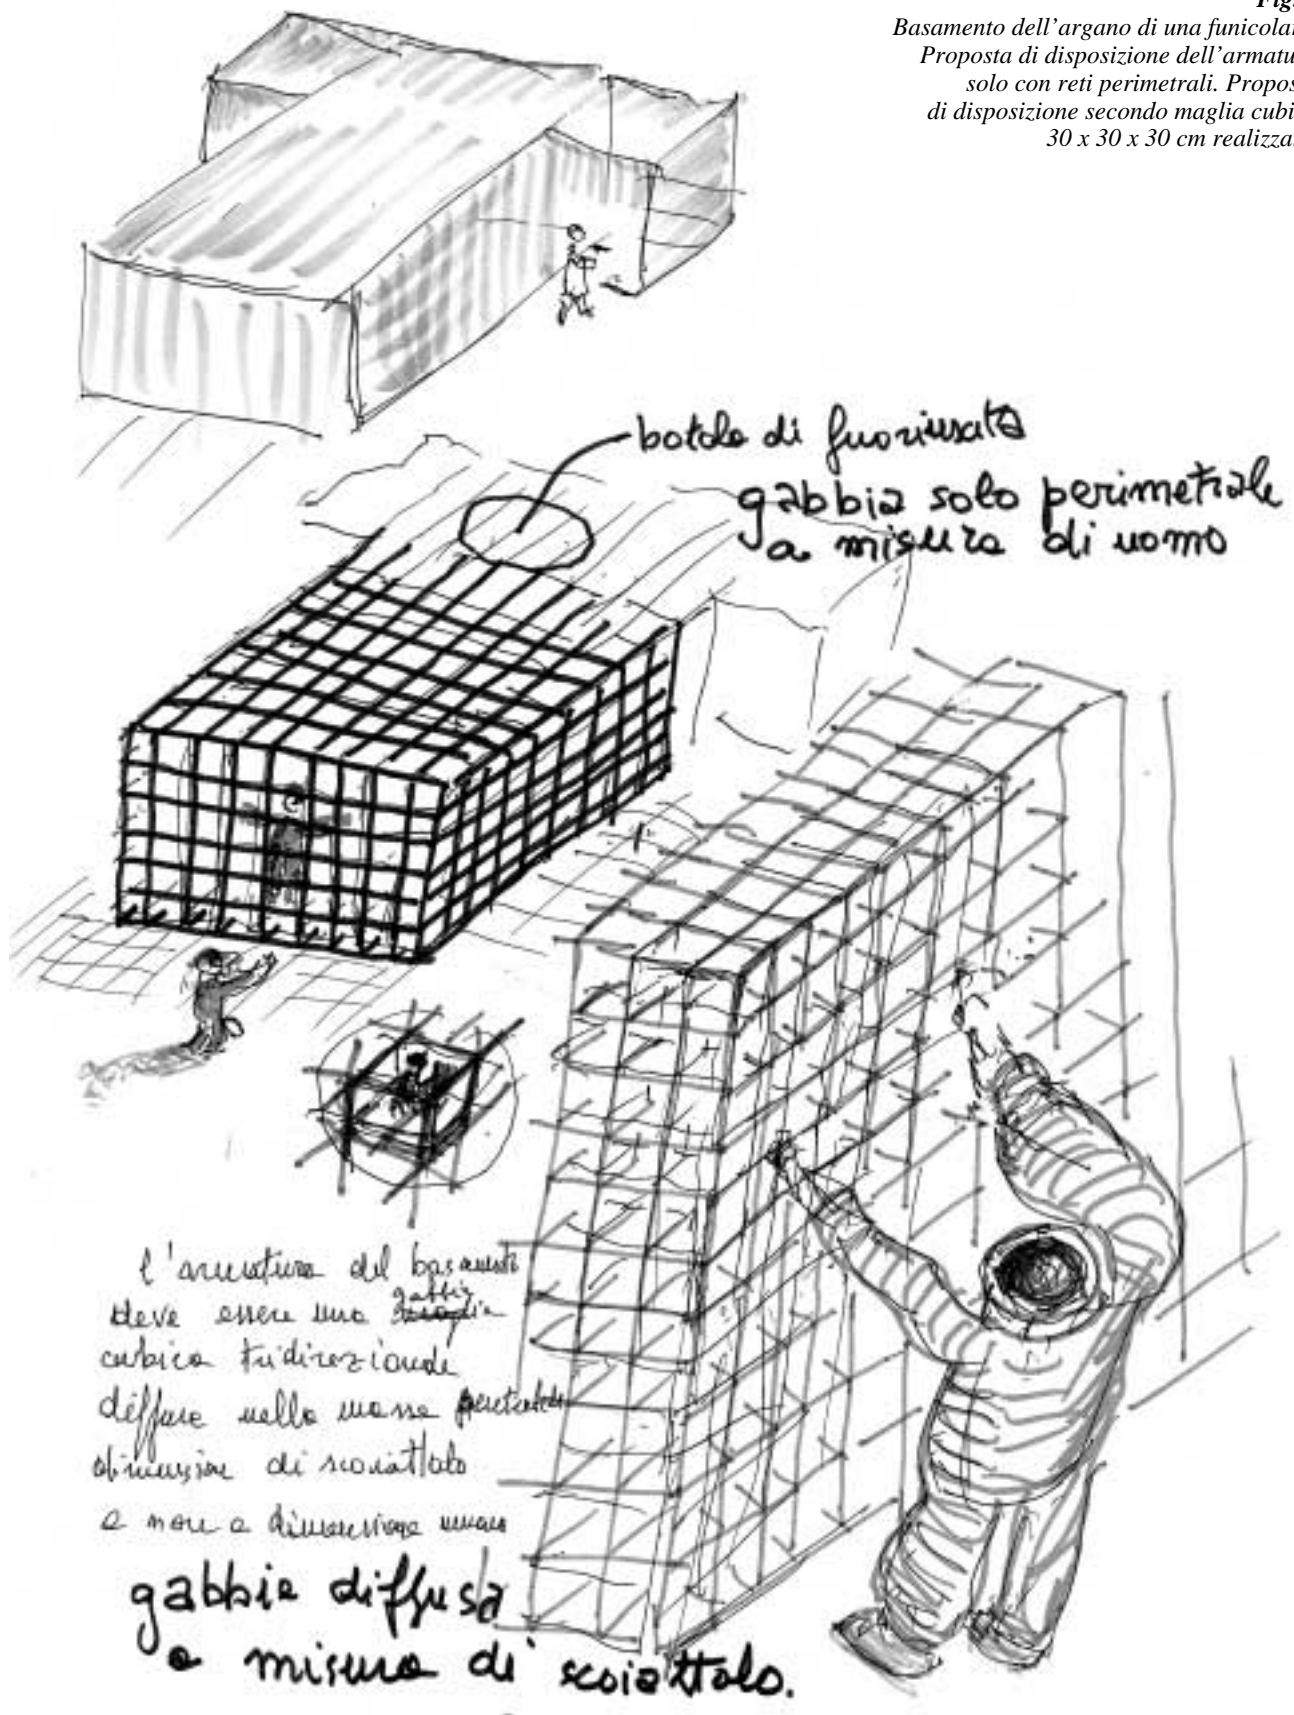 Fig.
Basamento dell'argano di una funicola
Proposta di disposizione dell'armatu
solo con reti perimetrali. Propos
di disposizione secondo maglia cubi
30 x 30 x 30 cm realizza
botola di fuoriuscita
gabbia solo perimetrale
a misura di uomo
l'armatura del basamento
deve essere una gabbia
cubica tridirezionale
diffusa nella massa
dimensione di scoiattolo
e non a dimensione umana
gabbia diffusa
a misura di scoiattolo.